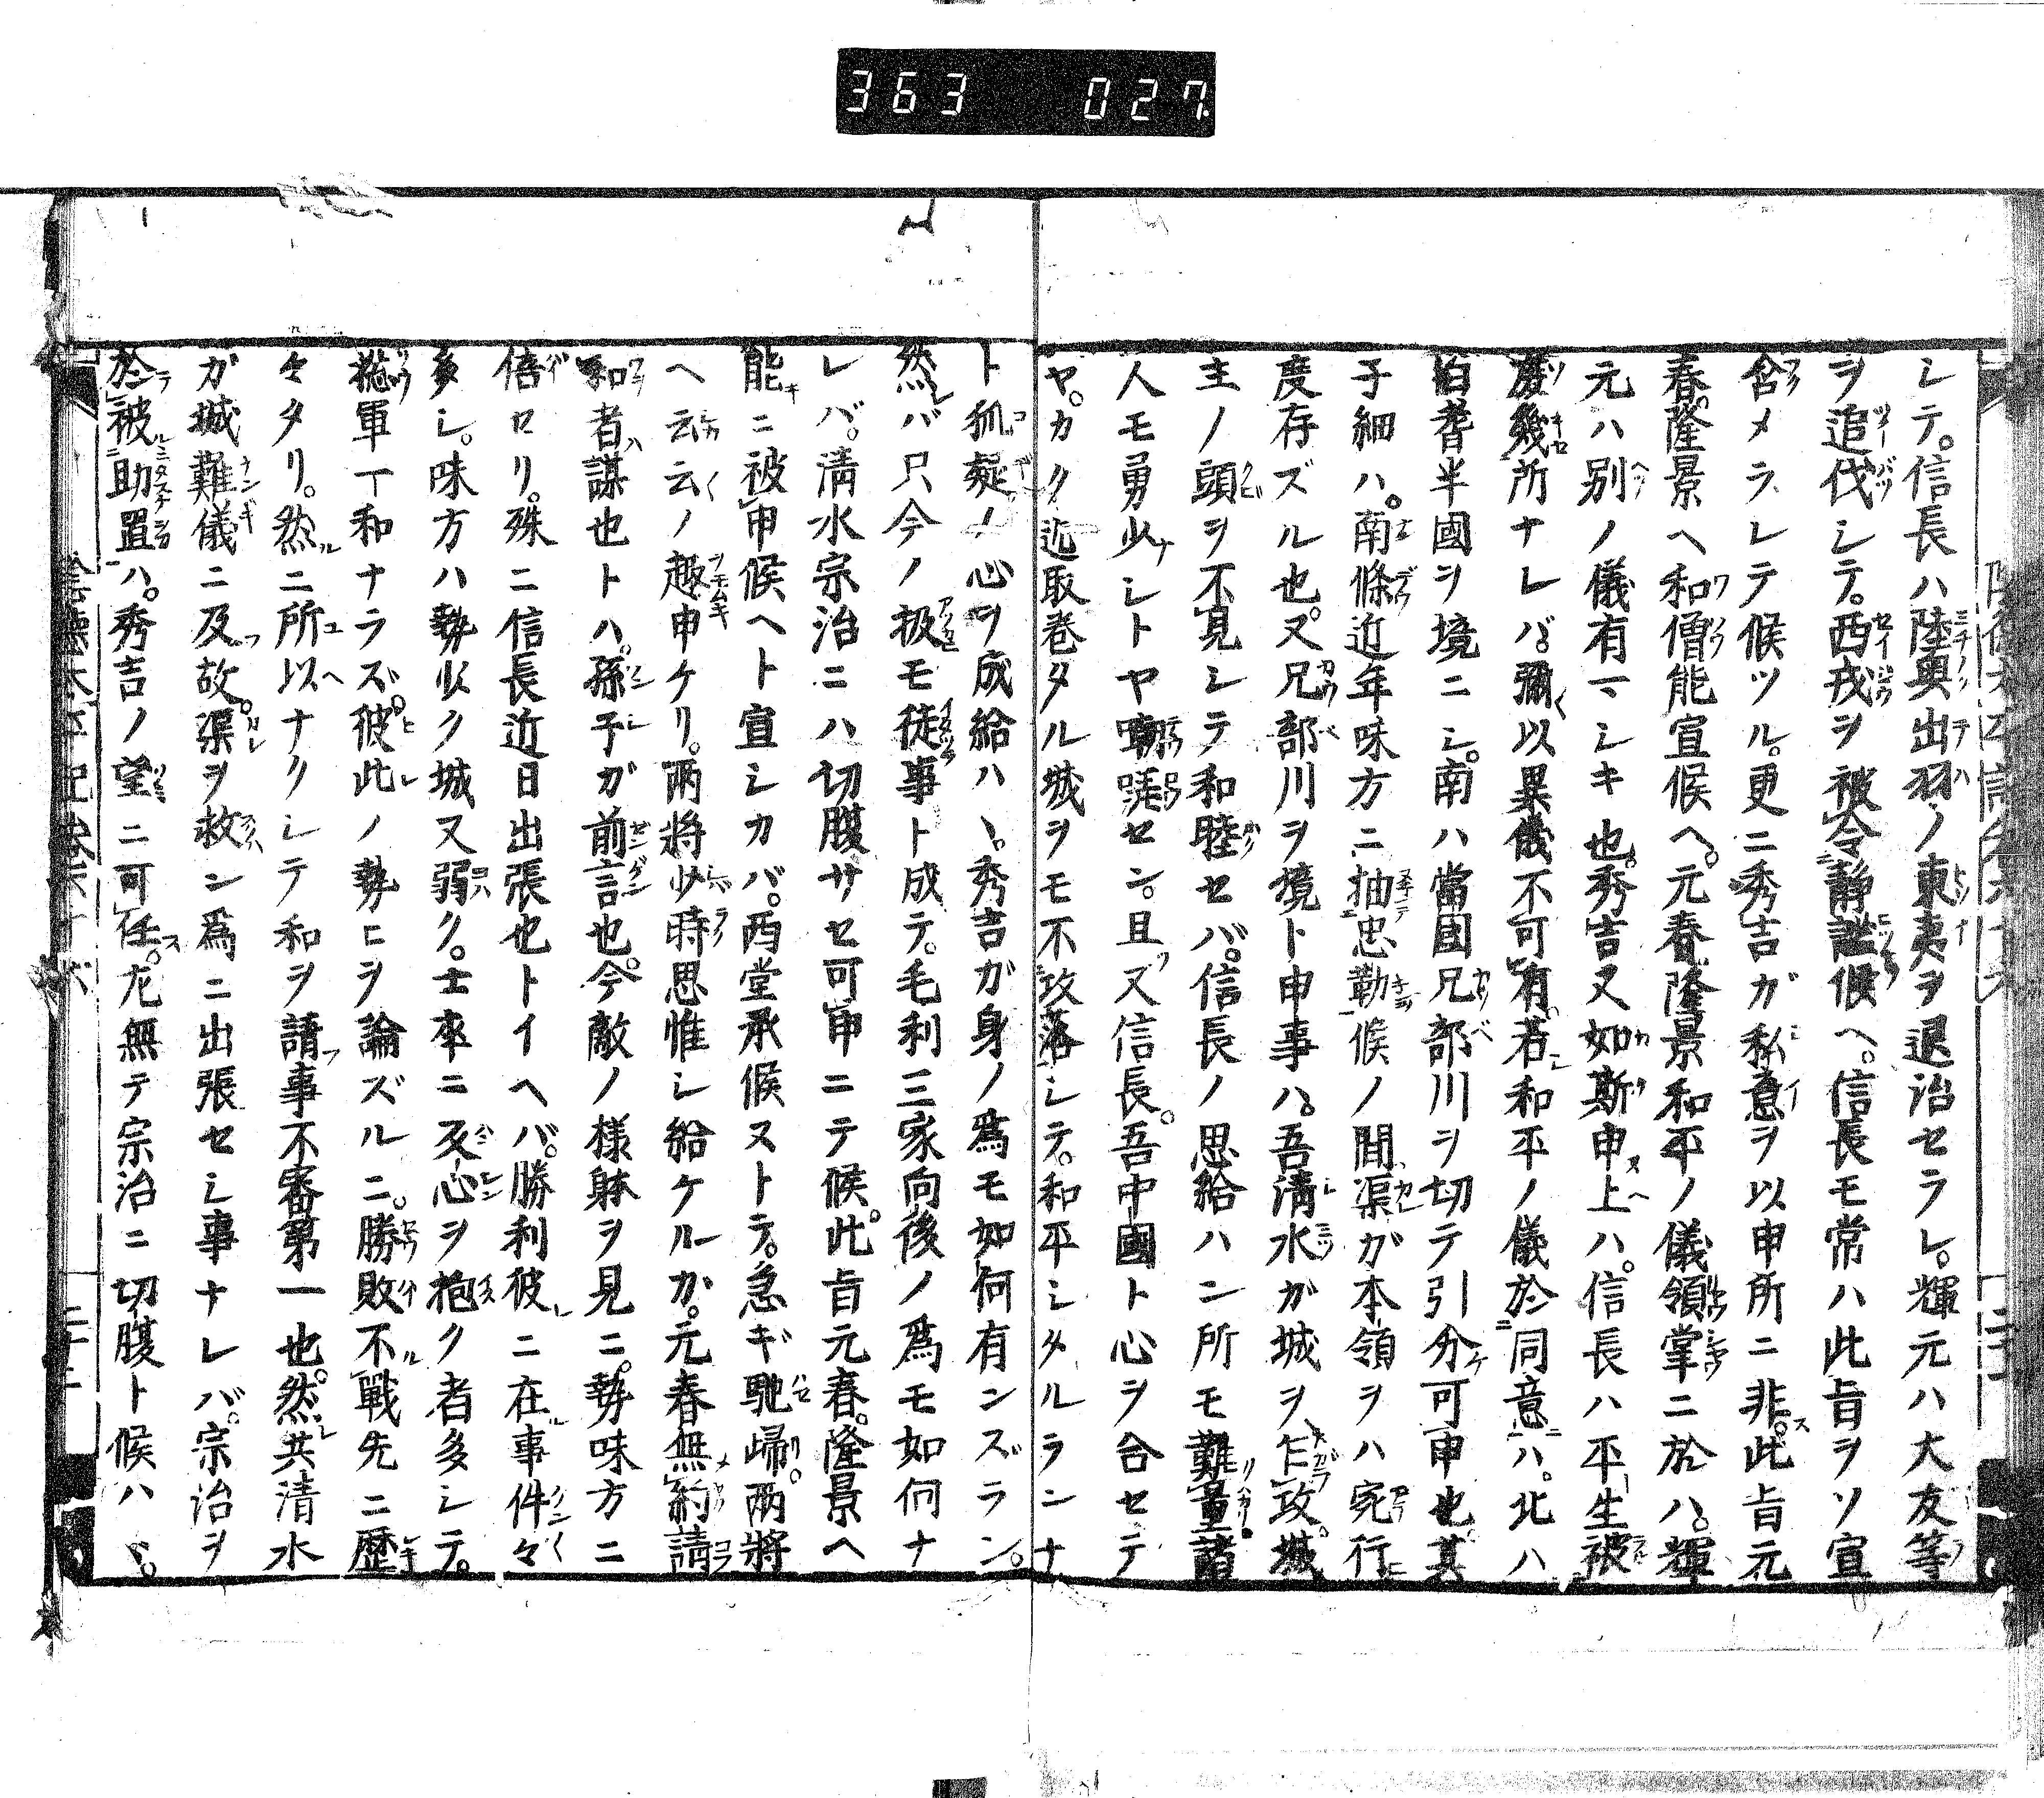 363 027
シテ。信長ハ陸奥出羽ノ東夷ヲ退治セラレ。輝元ハ大友等
ヲ追伐シテ。西戎ヲ被令静謐候ヘ。信長モ常ハ此旨ヲソ宣
含メラレテ候ツル。更ニ秀吉ガ私意ヲ以申所ニ非。此旨元
春。隆景ヘ和僧能宣候ヘ。元春隆景和平ノ儀領掌ニ於ハ。輝
元ハ別ノ儀有マシキ也。秀吉又如斯申上ハ。信長ハ平生被
慶幾所ナレバ。彌以異儀不可有。若和平ノ儀於同意ハ。北ハ
伯耆半國ヲ境ニシ。南ハ當國兄部川ヲ切テ引分可申也。其
子細ハ。南條近年味方ニ抽忠勤候ノ間。渠ガ本領ヲハ宛行
度存ズル也。又兄部川ヲ境ト申事ハ。吾清水ガ城ヲ乍攻。城
主ノ頭ヲ不見シテ和睦セバ。信長ノ思給ハン所モ難量。諸
人モ勇少シトヤ嘲哢セン。且又信長。吾中國ト心ヲ合セテ
ヤ。カク迄取巻タル城ヲモ不攻落シテ。和平シタルランナ
ト狐疑ノ心ヲ成給ハヽ。秀吉ガ身ノ爲モ如何有ンズラン。
然バ只今ノ扱モ徒事ト成テ。毛利三家向後ノ爲モ如何ナ
レバ。清水宗治ニハ切腹サセ可申ニテ候。此旨元春。隆景ヘ
能ニ被申候ヘト宣シカバ。西堂承候ストテ。急ギ馳帰。兩將
ヘ云云ノ趣申ケリ。兩將少時思惟シ給ケルカ。元春無約請
和者謀也トハ。孫子ガ前言也。今敵ノ様躰ヲ見ニ。勢味方ニ
倍セリ。殊ニ信長近日出張也トイヘバ。勝利彼ニ在事件々
多シ。味方ハ勢少ク城又弱ク。士卒ニ反心ヲ抱ク者多シテ。
惣軍一和ナラズ。彼此ノ勢ヒヲ論ズルニ。勝敗不戰先ニ歴
々タリ。然ニ所以ナクシテ和ヲ請事不審第一也。然共清水
ガ城難儀ニ及故。渠ヲ救ン爲ニ出張セシ事ナレバ。宗治ヲ
於被助置ハ。秀吉ノ望ニ可任。尤無テ宗治ニ切腹ト候ハヽ。